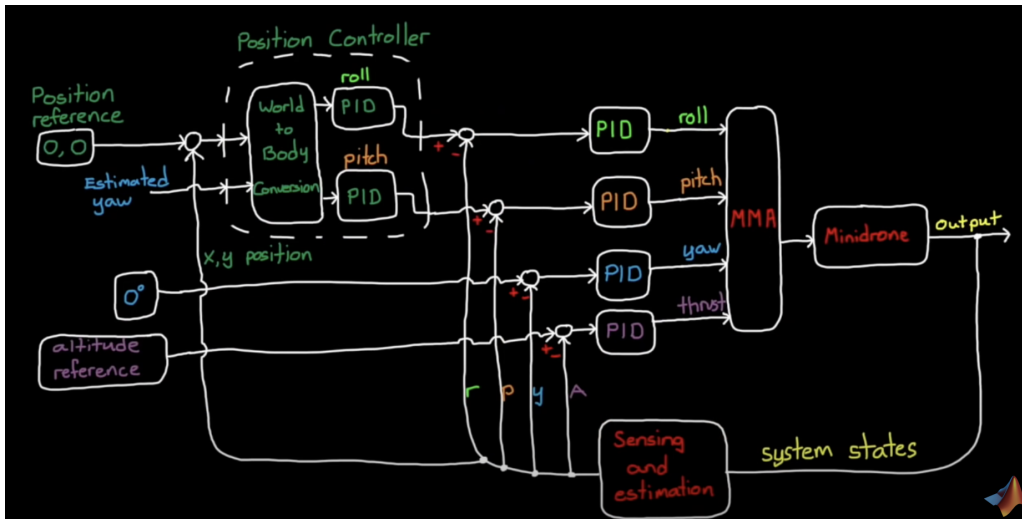 Position Controller
Position
reference
0,0
Estimated
yaw
World
to
Body
Conversion
roll
PID
pitch
PID
x,y position
0°
altitude
reference
+
-
+
-
+
-
+
-
PID
roll
PID
pitch
PID
yaw
PID
thrust
MMA
Minidrone
output
r
p
y
A
Sensing
and
estimation
system states